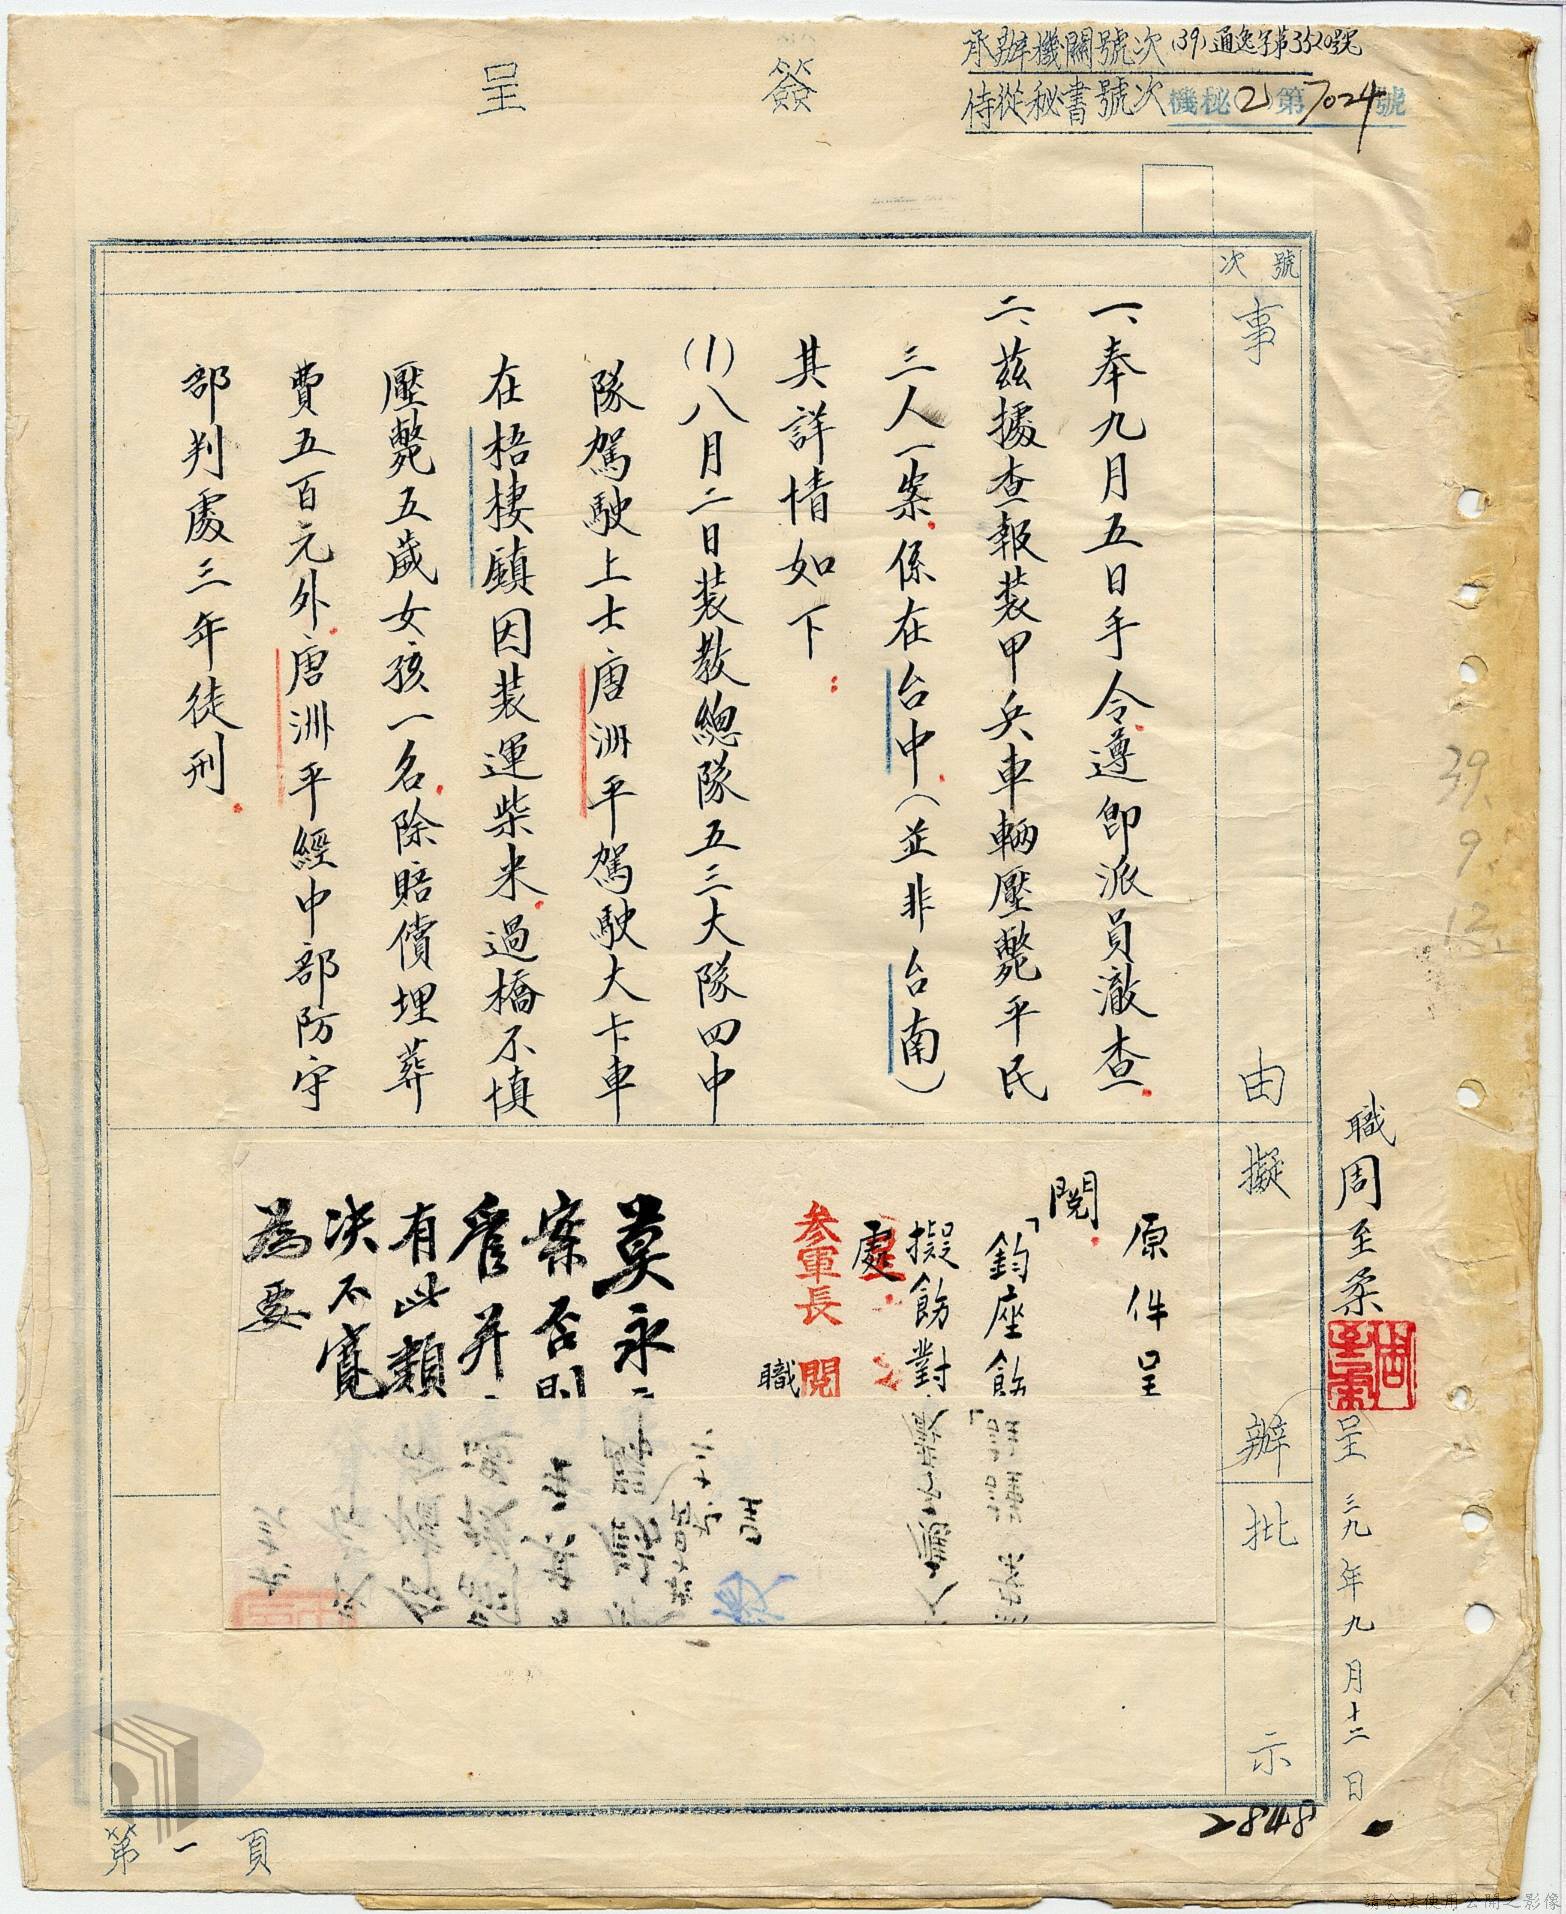 簽呈
承辦機關號次(39)通逸字第3520號
侍從秘書號次機秘(2)第7024號
號次
事由
擬辦
批示
一、奉九月五日手令遵即派員澈查
二、茲據查報裝甲兵車輛壓斃平民
三人一案係在台中(並非台南)
其詳情如下：
(1)八月二日裝教總隊五三大隊四中
隊駕駛上士唐洲平駕駛大卡車
在梧棲鎮因裝運柴米過橋不慎
壓斃五歲女孩一名除賠償埋葬
費五百元外唐洲平經中部防守
部判處三年徒刑
職周至柔呈三九年九月十二日
原件呈
閱
「鈞座飭
擬飭對
處
參軍長 閱
職
莫永
案否則
有此類
決不寬
為要
39.
9.
2848
第一頁
請合法使用公開之影像